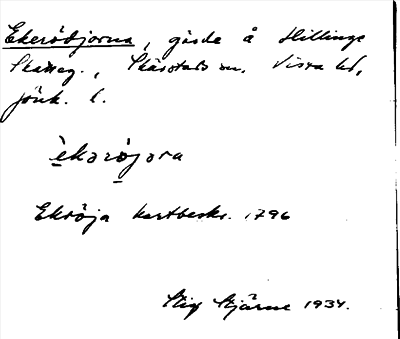 Ekerödjorna, gärde å Hillinge
Skatteg., Skärstads sn. Vista hd,
Jönk. l.
èkəröjəra
Ekröja kartbeskr. 1796
Stig Stjärne 1934.